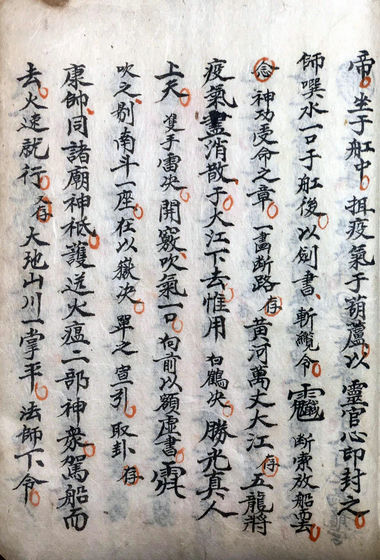 帝坐于舡中押疫氣于葫蘆以靈官心印封之
師噀水一口于舡後以劍書斬纜令斷索放船雲
念神功受命之章一畫斷路存黃河萬丈大江存五龍將
疫氣盡消散于大江下去惟用白鶴决勝光真人
上天雙手雷决開竅吹氣一口向前以額虛書
吹之剔南斗一座在以嶽决單之宣引取卦存
康帥同諸廟神祗護送火瘟二部神衆駕船而
去火速就行又存大地山川一掌平法師下令